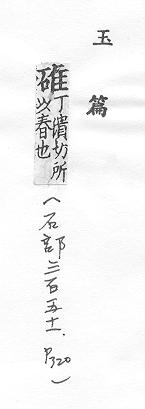 玉篇
碓丁潰切所
以舂也
(石部三百五十一, P320)